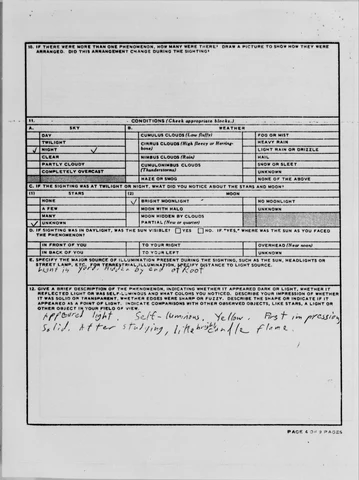 10. IF THERE WERE MORE THAN ONE PHENOMENON, HOW MANY WERE THERE? DRAW A PICTURE TO SHOW HOW THEY WERE
ARRANGED. DID THIS ARRANGEMENT CHANGE DURING THE SIGHTING?
11. CONDITIONS (Check appropriate blocks.)
A. SKY B. WEATHER
DAY CUMULUS CLOUDS (Low fluffy) FOG OR MIST
TWILIGHT CIRRUS CLOUDS (High fleecy or Herring-bone) HEAVY RAIN
✓ NIGHT ✓ LIGHT RAIN OR DRIZZLE
CLEAR NIMBUS CLOUDS (Rain) HAIL
PARTLY CLOUDY CUMULONIMBUS CLOUDS (Thunderstorms) SNOW OR SLEET
COMPLETELY OVERCAST UNKNOWN
HAZE OR SMOG NONE OF THE ABOVE
C. IF THE SIGHTING WAS AT TWILIGHT OR NIGHT, WHAT DID YOU NOTICE ABOUT THE STARS AND MOON?
(1) STARS (2) MOON
NONE ✓ BRIGHT MOONLIGHT NO MOONLIGHT
A FEW MOON WITH HALO UNKNOWN
MANY MOON HIDDEN BY CLOUDS
✓ UNKNOWN PARTIAL (New or quarter)
D. IF SIGHTING WAS IN DAYLIGHT, WAS THE SUN VISIBLE? YES NO. IF "YES," WHERE WAS THE SUN AS YOU FACED
THE PHENOMENON?
IN FRONT OF YOU TO YOUR RIGHT OVERHEAD (Near noon)
IN BACK OF YOU TO YOUR LEFT UNKNOWN
E. SPECIFY THE MAJOR SOURCE OF ILLUMINATION PRESENT DURING THE SIGHTING, SUCH AS THE SUN, HEADLIGHTS OR
STREET LAMP, ETC. FOR TERRESTRIAL ILLUMINATION, SPECIFY DISTANCE TO LIGHT SOURCE.
Light in yard. by end of Root
12. GIVE A BRIEF DESCRIPTION OF THE PHENOMENON, INDICATING WHETHER IT APPEARED DARK OR LIGHT, WHETHER IT
REFLECTED LIGHT OR WAS SELF-LUMINOUS AND WHAT COLORS YOU NOTICED. DESCRIBE YOUR IMPRESSION OF WHETHER
IT WAS SOLID OR TRANSPARENT, WHETHER EDGES WERE SHARP OR FUZZY. DESCRIBE THE SHAPE OR INDICATE IF IT
APPEARED AS A POINT OF LIGHT. INDICATE COMPARISONS WITH OTHER OBSERVED OBJECTS, LIKE STARS, A LIGHT OR
OTHER OBJECT IN YOUR FIELD OF VIEW.
Appeared light. Self-luminous. Yellow. First impression
Solid. After studying, like bright candle flame.
PAGE 4 OF 9 PAGES